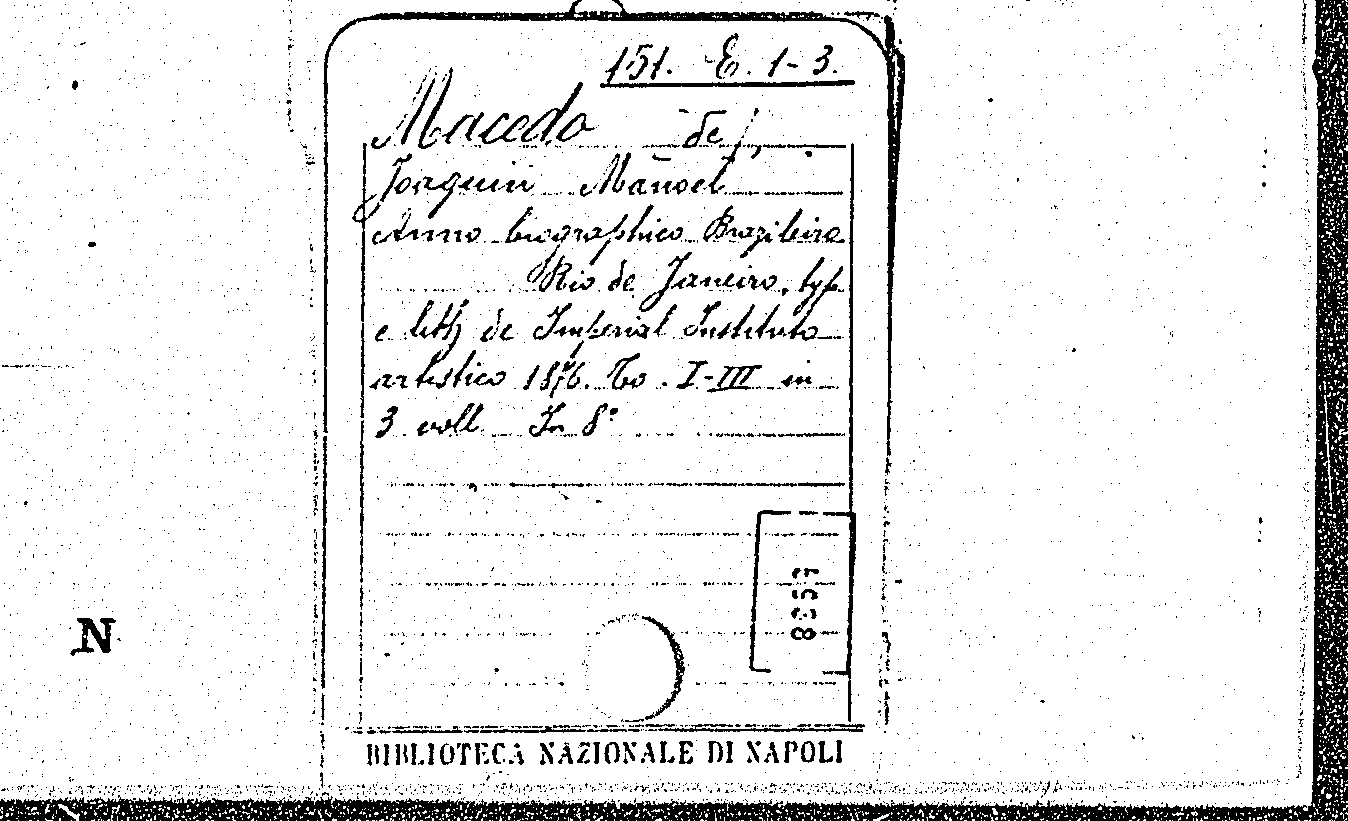 151. E. 1-3.
Macedo de /,
Joaquin Manoel
Anno biographico Brazileiro
Rio de Janeiro, typ
e lith de Imperial Instituto
artistico 1876. To. I-III in
3 voll In 8°
8357
N
BIBLIOTECA NAZIONALE DI NAPOLI